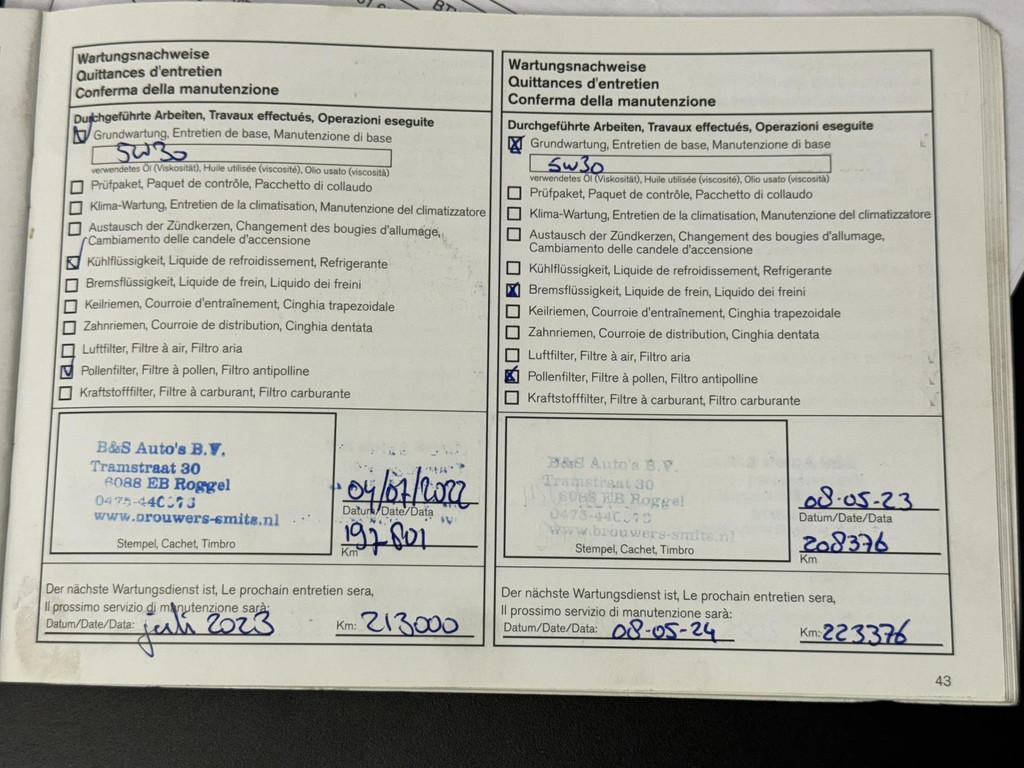 Wartungsnachweise
Quittances d'entretien
Conferma della manutenzione
Durchgeführte Arbeiten, Travaux effectués, Operazioni eseguite
Grundwartung, Entretien de base, Manutenzione di base
5W30
verwendetes Öl (Viskosität), Huile utilisée (viscosité), Olio usato (viscosità)
Prüfpaket, Paquet de contrôle, Pacchetto di collaudo
Klima-Wartung, Entretien de la climatisation, Manutenzione del climatizzatore
Austausch der Zündkerzen, Changement des bougies d'allumage,
Cambiamento delle candele d'accensione
Kühlflüssigkeit, Liquide de refroidissement, Refrigerante
Bremsflüssigkeit, Liquide de frein, Liquido dei freini
Keilriemen, Courroie d'entraînement, Cinghia trapezoidale
Zahnriemen, Courroie de distribution, Cinghia dentata
Luftfilter, Filtre à air, Filtro aria
Pollenfilter, Filtre à pollen, Filtro antipolline
Kraftstofffilter, Filtre à carburant, Filtro carburante
B&S Auto's B.V.
Tramstraat 30
6088 EB Roggel
www.brouwers-smits.nl
Stempel, Cachet, Timbro
04/07/2022
Datum/Date/Data
197801
Km
Der nächste Wartungsdienst ist, Le prochain entretien sera,
Il prossimo servizio di manutenzione sarà:
Datum/Date/Data: juli 2023 Km: 213000
Wartungsnachweise
Quittances d'entretien
Conferma della manutenzione
Durchgeführte Arbeiten, Travaux effectués, Operazioni eseguite
Grundwartung, Entretien de base, Manutenzione di base
5W30
verwendetes Öl (Viskosität), Huile utilisée (viscosité), Olio usato (viscosità)
Prüfpaket, Paquet de contrôle, Pacchetto di collaudo
Klima-Wartung, Entretien de la climatisation, Manutenzione del climatizzatore
Austausch der Zündkerzen, Changement des bougies d'allumage,
Cambiamento delle candele d'accensione
Kühlflüssigkeit, Liquide de refroidissement, Refrigerante
Bremsflüssigkeit, Liquide de frein, Liquido dei freini
Keilriemen, Courroie d'entraînement, Cinghia trapezoidale
Zahnriemen, Courroie de distribution, Cinghia dentata
Luftfilter, Filtre à air, Filtro aria
Pollenfilter, Filtre à pollen, Filtro antipolline
Kraftstofffilter, Filtre à carburant, Filtro carburante
B&S Auto's B.V.
Tramstraat 30
6088 EB Roggel
www.brouwers-smits.nl
Stempel, Cachet, Timbro
08-05-23
Datum/Date/Data
208376
Km
Der nächste Wartungsdienst ist, Le prochain entretien sera,
Il prossimo servizio di manutenzione sarà:
Datum/Date/Data: 08-05-24 Km: 223376
43